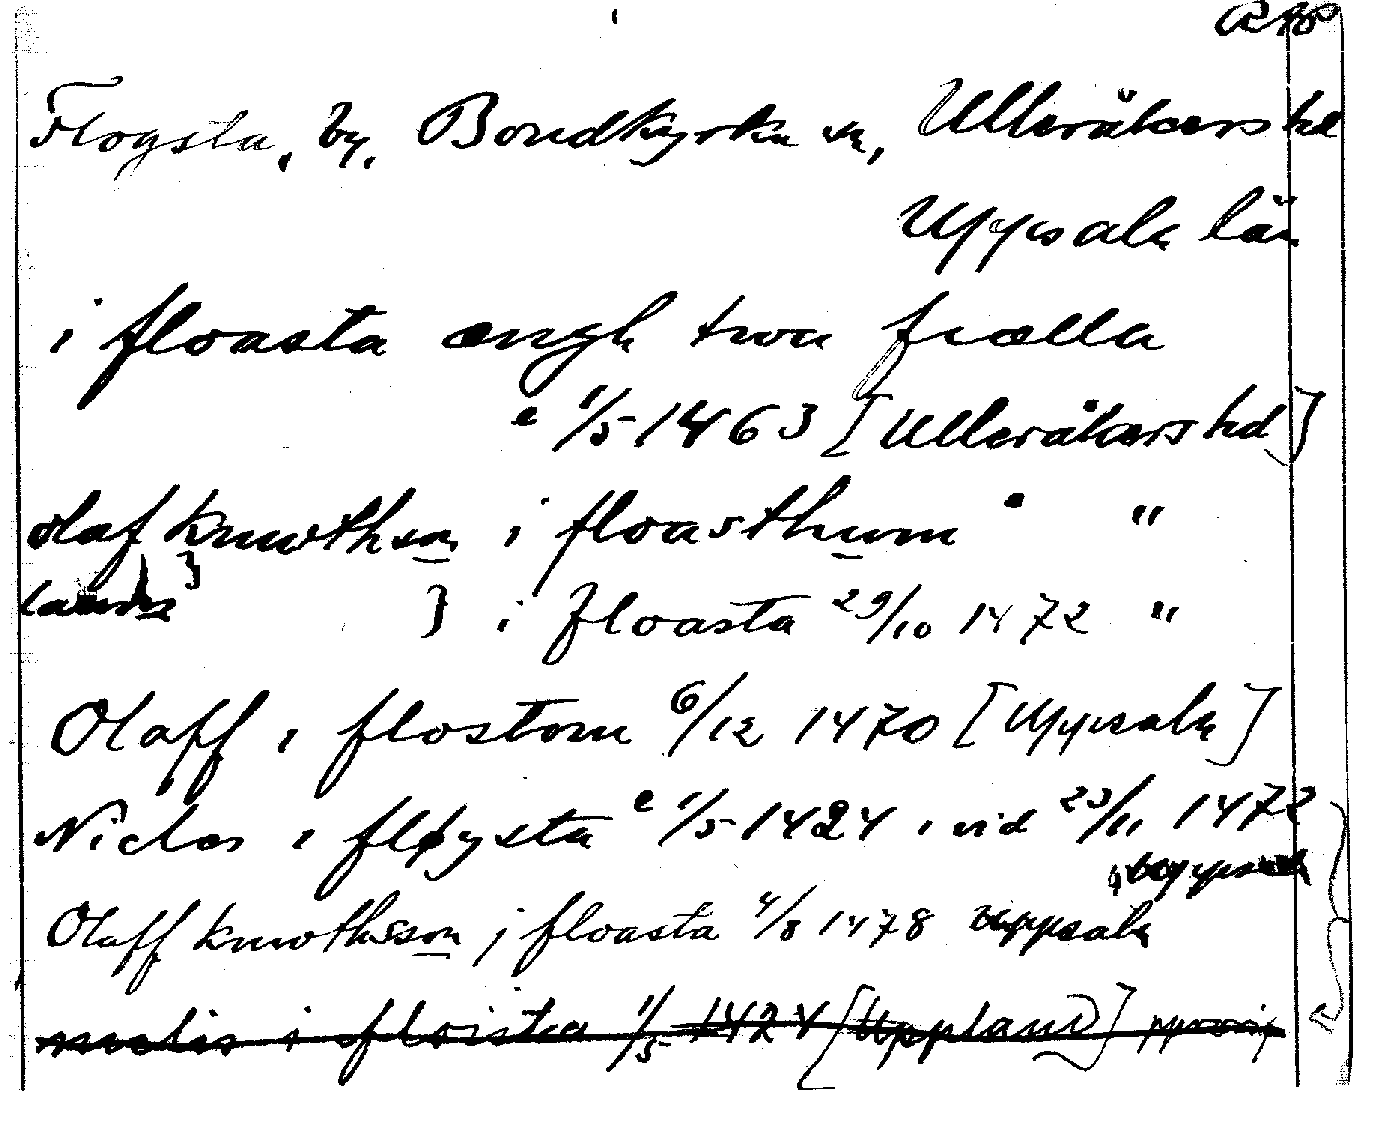 Flogsta, by, Bondkyrka sn, Ulleråkers hd
Uppsala län
i floasta ængh twa fiælla
e 1/5 1463 [Ulleråkers hd]
olaf knwthson i floasthum " "
} i floasta 29/10 1472 "
Olaff i flostom 6/12 1470 [Uppsala]
Niclos i fløysta e 1/5 1424, vid 23/11 1472
Olaff knwthsson j floasta 4/8 1478 uppsala
niclis i floista 1/5 1424 [Uppland]